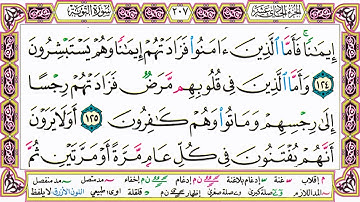 الجزء الحادي عشر ٢٠٧ سورة التوبة
إِيمَٰنًا ۚ فَأَمَّا ٱلَّذِينَ ءَامَنُوا۟ فَزَادَتْهُمْ إِيمَٰنًا وَهُمْ يَسْتَبْشِرُونَ
١٢٤ وَأَمَّا ٱلَّذِينَ فِى قُلُوبِهِم مَّرَضٌ فَزَادَتْهُمْ رِجْسًا
إِلَىٰ رِجْسِهِمْ وَمَاتُوا۟ وَهُمْ كَٰفِرُونَ ١٢٥ أَوَلَا يَرَوْنَ
أَنَّهُمْ يُفْتَنُونَ فِى كُلِّ عَامٍ مَّرَّةً أَوْ مَرَّتَيْنِ ثُمَّ